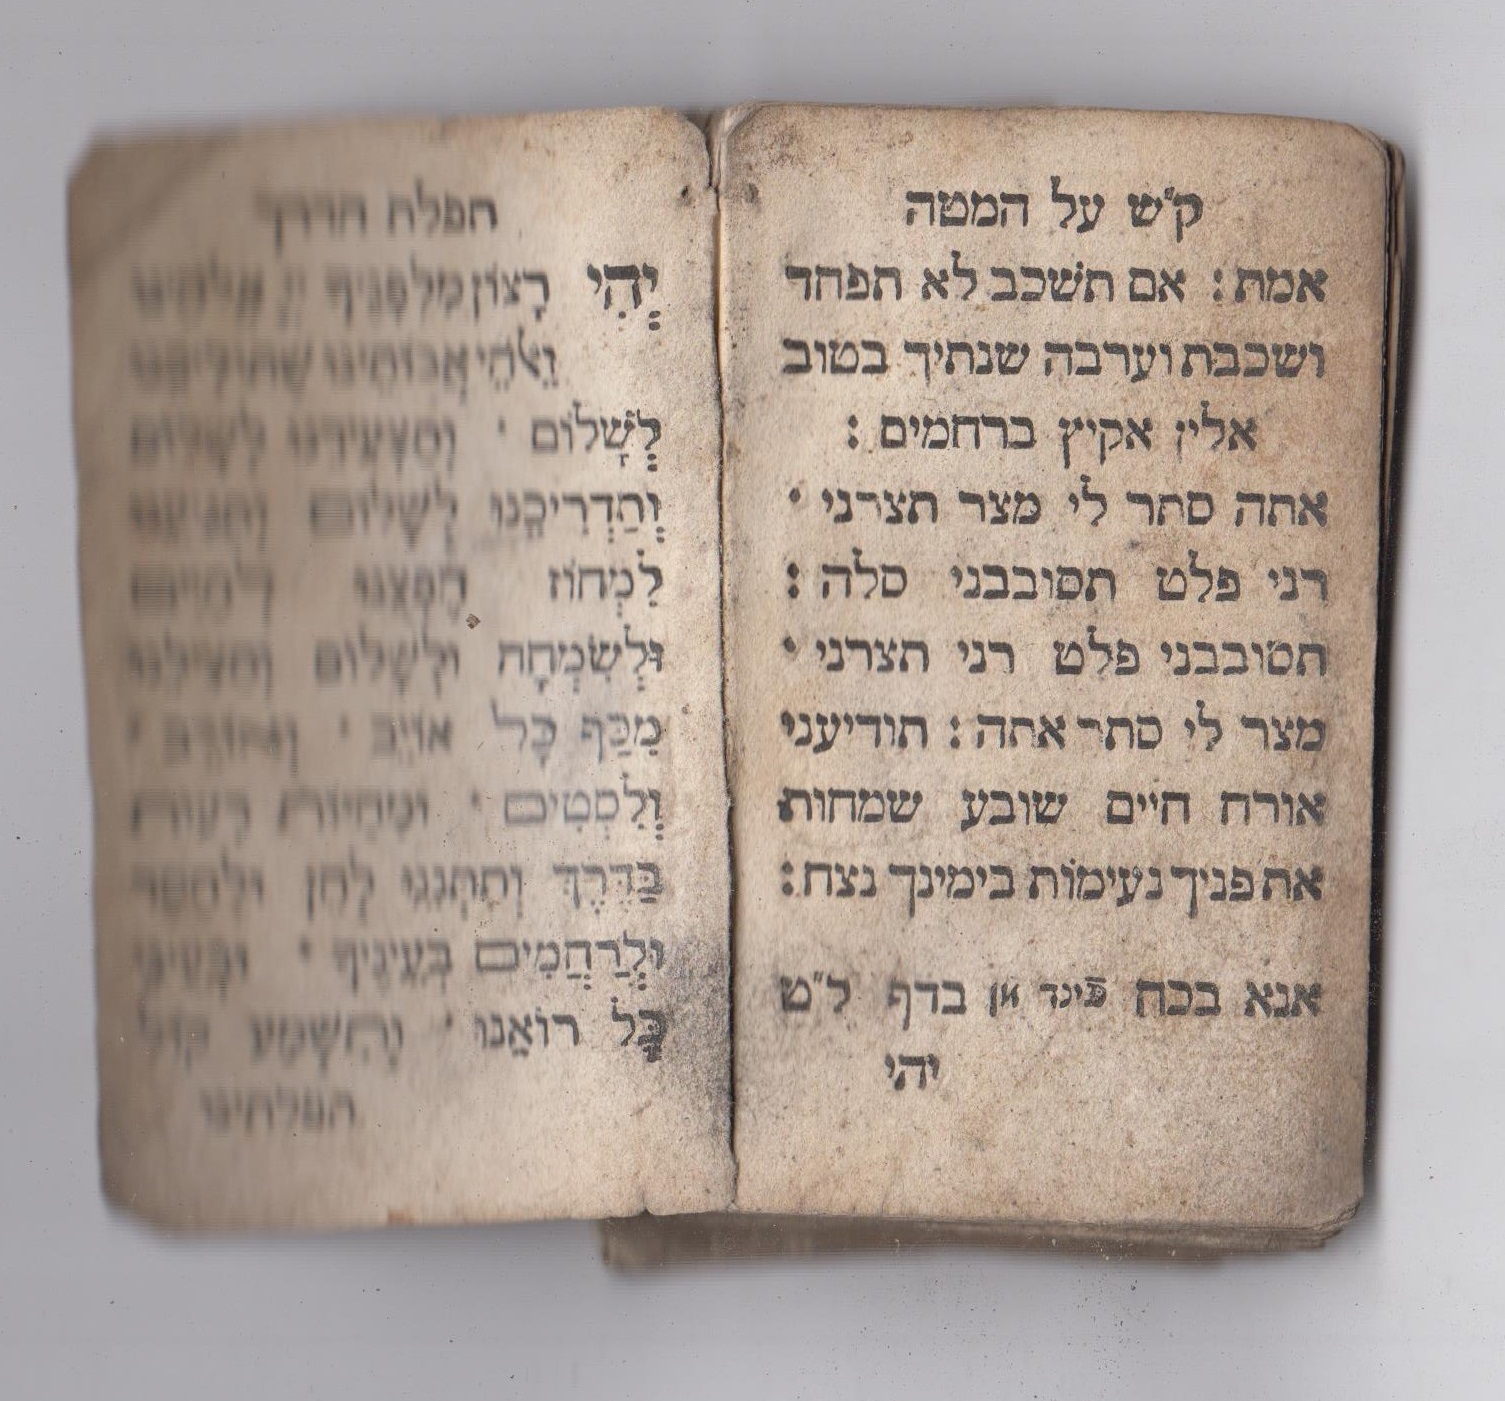 ק"ש על המטה
אמת : אם תשכב לא תפחד
ושכבת וערבה שנתיך בטוב
אלין אקיץ ברחמים :
אתה סתר לי מצר תצרני ·
רני פלט תסובבני סלה :
תסובבני פלט רני תצרני ·
מצר לי סתר אתה : תודיעני
אורח חיים שובע שמחות
את פניך נעימות בימינך נצח :
אנא בכח פינד מן בדף ל"ט
יהי
תפלת הדרך
יְהִי רָצוֹן מִלְּפָנֶיךָ
וֵאלֹהֵי אֲבוֹתֵינוּ
לְשָׁלוֹם · וְתַצְעִידֵנוּ לְשָׁלוֹם
וְתַדְרִיכֵנוּ לְשָׁלוֹם
לִמְחוֹז חֶפְצֵנוּ לְחַיִּים
וּלְשִׂמְחָה וּלְשָׁלוֹם וְתַצִּילֵנוּ
מִכַּף כָּל אוֹיֵב · וְאוֹרֵב ·
וְלִסְטִים · וּמֵחַיּוֹת רָעוֹת
בַּדֶּרֶךְ וְתִתְּנֵנִי לְחֵן וּלְחֶסֶד
וּלְרַחֲמִים בְּעֵינֶיךָ · וּבְעֵינֵי
כָּל רוֹאֵנוּ · וְתִשְׁמַע קוֹל
תפלתינו